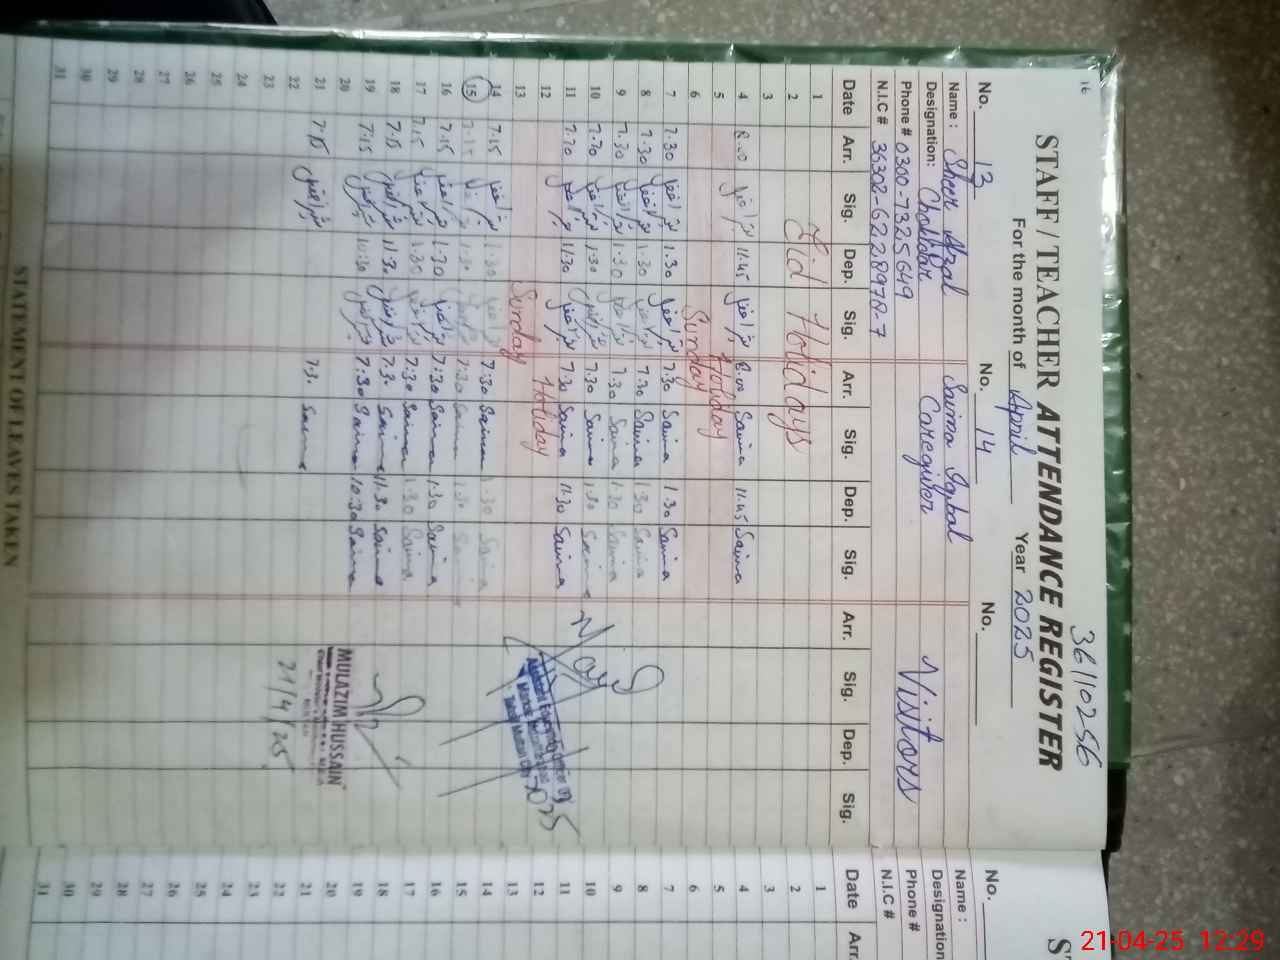 16
36110256
STAFF / TEACHER ATTENDANCE REGISTER
For the month of April Year 2025
No. 13 No. 14 No.
Name : Sheer Afzal Saima Iqbal Visitors
Designation: Chokidar Caregiver
Phone # 0300-7325649
N.I.C # 36302-6228978-7
Date Arr. Sig. Dep. Sig. Arr. Sig. Dep. Sig. Arr. Sig. Dep. Sig.
1
2 Eid Holidays
3
4 8.00 شیرافضل 11.45 شیرافضل 8.00 Saima 11.45 Saima
5 Holiday
6 Sunday
7 7.30 شیرافضل 1.30 شیرافضل 7.30 Saima 1.30 Saima
8 7.30 شیرافضل 1.30 شیرافضل 7.30 Saima 1.30 Saima
9 7.30 شیرافضل 1.30 شیرافضل 7.30 Saima 1.30 Saima
10 7.30 شیرافضل 1.30 شیرافضل 7.30 Saima 1.30 Saima
11 7.30 شیرافضل 11.30 شیرافضل 7.30 Saima 11.30 Saima
12 Holiday
13 Sunday
14 7.15 شیرافضل 1.30 شیرافضل 7.30 Saima 1.30 Saima
15 7.15 شیرافضل 1.30 شیرافضل 7.30 Saima 1.30 Saima
16 7.15 شیرافضل 1.30 شیرافضل 7.30 Saima 1.30 Saima
17 7.15 شیرافضل 1.30 شیرافضل 7.30 Saima 1.30 Saima
18 7.15 شیرافضل 11.30 شیرافضل 7.30 Saima 11.30 Saima
19 7.15 شیرافضل 10.30 شیرافضل 7:30 Saima 10.30 Saima
20
21 7:15 شیرافضل 7.30 Saima
22
23
24
25
26
27
28
29
30
31
2025
MULAZIM HUSSAIN
21/4/25
STATEMENT OF LEAVES TAKEN
No.
Name :
Designation
Phone #
N.I.C #
Date Arr.
1
2
3
4
5
6
7
8
9
10
11
12
13
14
15
16
17
18
19
20
21
22
23
24
25
26
27
28
29
30
31
21-04-25 12:29